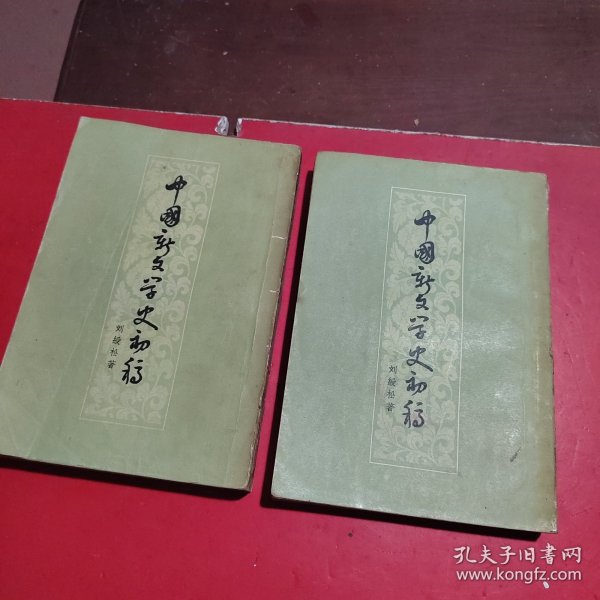 中國新文学史初稿
刘綬松著
中國新文学史初稿
刘綬松著
孔夫子旧书网
www.kongfz.com